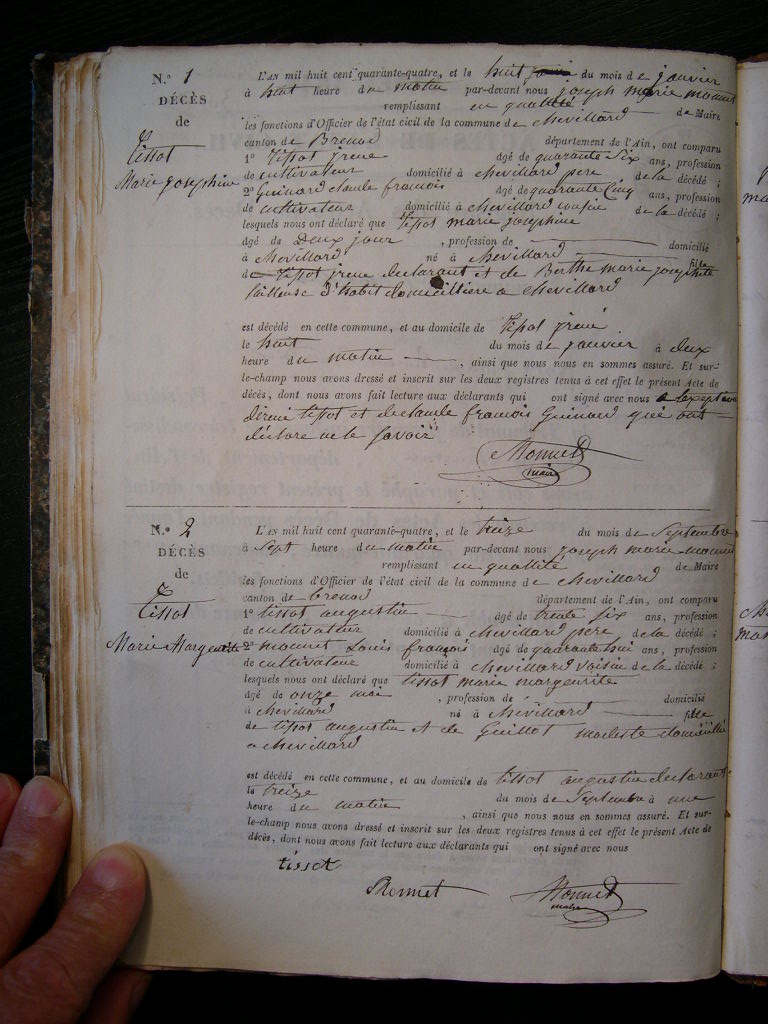 N.º 1
DÉCÈS
de
Tissot
Marie Josephine
L'AN mil huit cent quarante-quatre, et le huit du mois de janvier
à huit heure du matin par-devant nous joseph marie monnet
remplissant en quallité de Maire
les fonctions d'Officier de l'état civil de la commune de chevillard
canton de Brenod département de l'Ain, ont comparu
1º tissot irené âgé de quarante six ans, profession
de cultivateur domicilié à chevillard pere de la décédé ;
2º Guinard claude francois âgé de quarante cinq ans, profession
de cultivateur domicilié à chevillard voisin de la décédé ;
lesquels nous ont déclaré que tissot marie josephine
âgé de Deux jour , profession de domicilié
à chevillard né à chevillard fille
de tissot irené declarant et de Berthe marie josephte
tailleuse d'habit domicilliere a chevillard
est décédé en cette commune, et au domicile de tissot irené
le huit du mois de janvier à deux
heure du matin , ainsi que nous nous en sommes assuré. Et sur-
le-champ nous avons dressé et inscrit sur les deux registres tenus à cet effet le présent Acte de
décès, dont nous avons fait lecture aux déclarants qui ont signé avec nous a lexeption
direné tissot et de claude francois Guinard qui ont
déclare ne le savoir
Monnet
maire
N.º 2
DÉCÈS
de
tissot
Marie Margeurite
L'AN mil huit cent quarante-quatre, et le treize du mois de Septembre
à Sept heure du matin par-devant nous joseph marie monnet
remplissant en quallité de Maire
les fonctions d'Officier de l'état civil de la commune de chevillard
canton de brenod département de l'Ain, ont comparu
1º tissot augustin âgé de trente six ans, profession
de cultivateur domicilié à chevillard pere de la décédé ;
2º monnet Louis françois âgé de quarante hui ans, profession
de cultivateur domicilié à chevillard voisin de la décédé ;
lesquels nous ont déclaré que tissot marie margeurite
âgé de onze moi , profession de domicilié
à chevillard né à chevillard fille
de tissot augustin et de Guillot modeste domicillié
a chevillard
est décédé en cette commune, et au domicile de tissot augustin declarant
le treize du mois de Septembre à une
heure du matin , ainsi que nous nous en sommes assuré. Et sur-
le-champ nous avons dressé et inscrit sur les deux registres tenus à cet effet le présent Acte de
décès, dont nous avons fait lecture aux déclarants qui ont signé avec nous
tissot
Monnet Monnet
maire